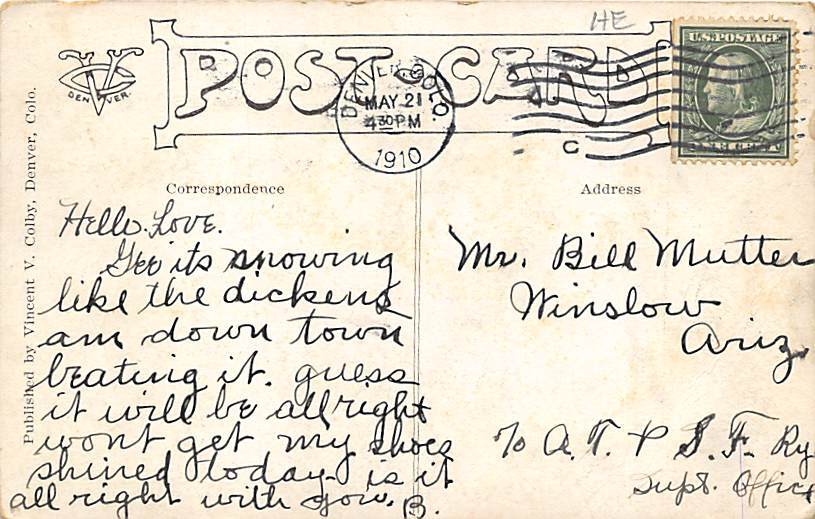 HE
POST CARD
U.S. POSTAGE
ONE CENT
CVC
DENVER.
DENVER, COLO.
MAY 21
430 PM
1910
C
Correspondence
Address
Published by Vincent V. Colby, Denver, Colo.
Hello Love.
Gee its snowing
like the dickens
am down town
beating it. guess
it will be allright
wont get my shoes
shined today. is it
all right with you. B.
Mr. Bill Mutter
Winslow
Ariz.
℅ A. T. & S. F. Ry
Supt. Office